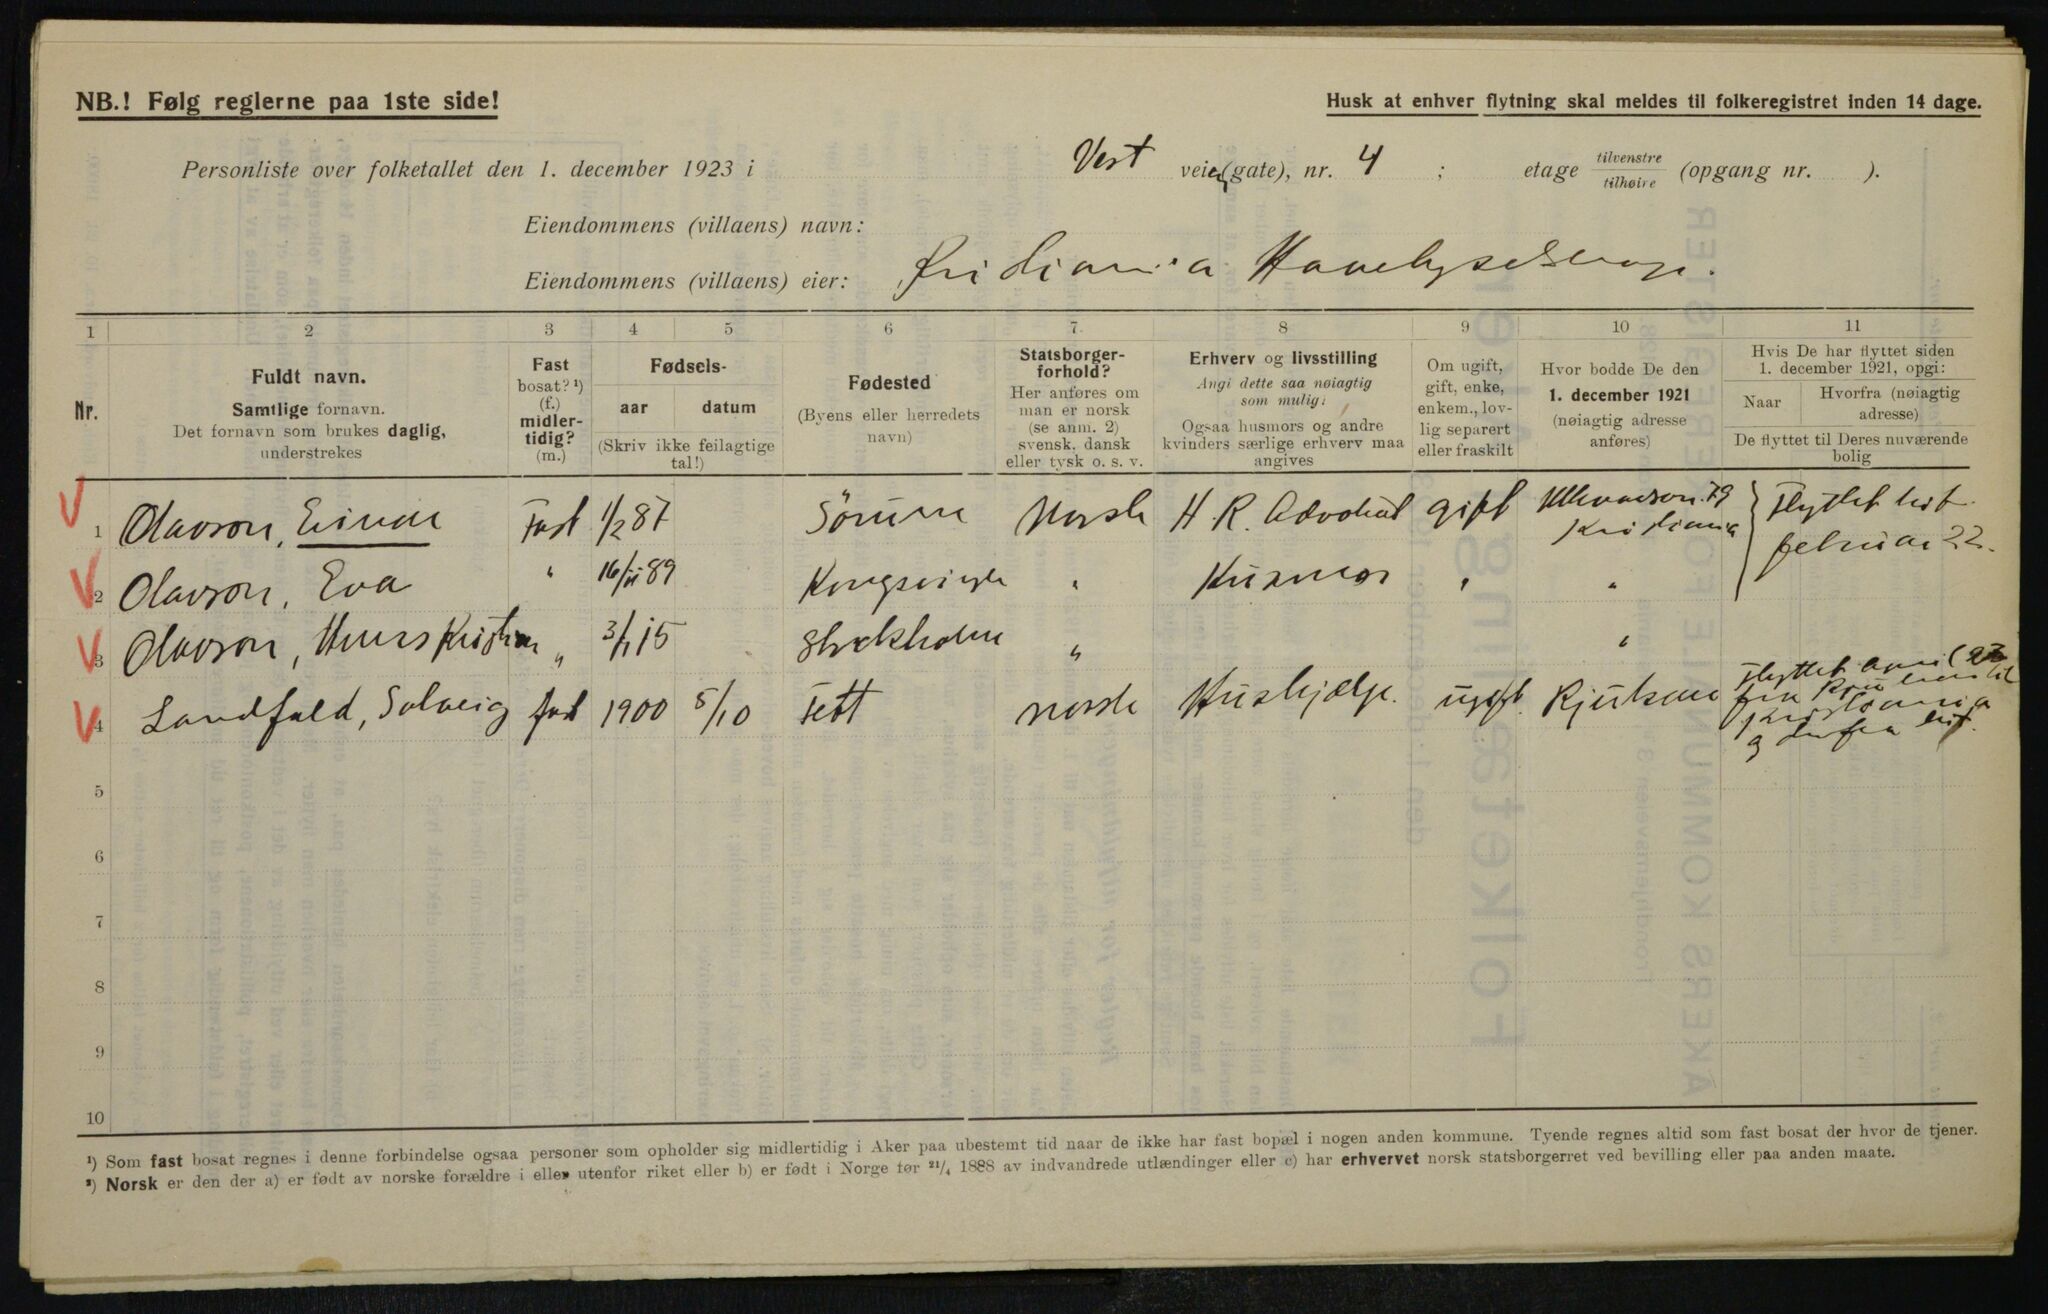 NB.! Følg reglerne paa 1ste side!
Husk at enhver flytning skal meldes til folkeregistret inden 14 dage.
Personliste over folketallet den 1. december 1923 i Vest veien (gate), nr. 4 ; etage tilvenstre tilhøire (opgang nr. ).
Eiendommens (villaens) navn:
Eiendommens (villaens) eier:
1 2 3 4 5 6 7. 8 9 10 11
Nr.
Fuldt navn.
Samtlige fornavn.
Det fornavn som brukes daglig,
understrekes
Fast
bosat? ¹)
(f.)
midler-
tidig?
(m.)
Fødsels-
aar datum
(Skriv ikke feilagtige
tal!)
Fødested
(Byens eller herredets
navn)
Statsborger-
forhold?
Her anføres om
man er norsk
(se anm. 2)
svensk, dansk
eller tysk o. s. v.
Erhverv og livsstilling
Angi dette saa nøiagtig
som mulig:
Ogsaa husmors og andre
kvinders særlige erhverv maa
angives
Om ugift,
gift, enke,
enkem., lov-
lig separert
eller fraskilt
Hvor bodde De den
1. december 1921
(nøiagtig adresse
anføres)
Hvis De har flyttet siden
1. december 1921, opgi:
Naar
Hvorfra (nøiagtig
adresse)
De flyttet til Deres nuværende
bolig
1 Olavson, Einar Fast 1/2 87 Sörum Norsk H. R. Advokat gift Kristiania Flyttet hit
februar 22.
2 Olavson, Eva " 16/11 89 Kongsvinger " Husmor " "
3 Olavson, Hans Kristian " 3/1 15 Stockholm " "
4 Landfald, Solveig fast 1900 5/10 Fett norsk Hushjælp. ugift. Rjukan flyttet april
fra Rjukan til
Kristiania
og derfra hit.
5
6
7
8
9
10
¹) Som fast bosat regnes i denne forbindelse ogsaa personer som opholder sig midlertidig i Aker paa ubestemt tid naar de ikke har fast bopæl i nogen anden kommune. Tyende regnes altid som fast bosat der hvor de tjener.
²) Norsk er den der a) er født av norske forældre i eller utenfor riket eller b) er født i Norge før 21/4 1888 av indvandrede utlændinger eller c) har erhvervet norsk statsborgerret ved bevilling eller paa anden maate.